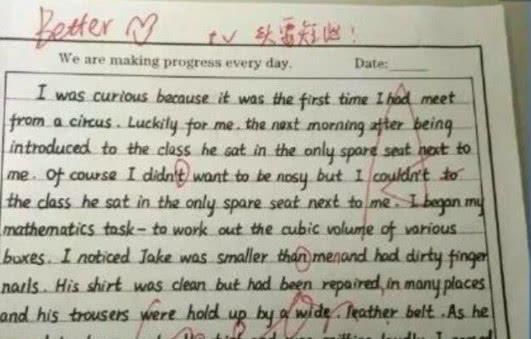 Better
We are making progress every day. Date:
I was curious because it was the first time I had meet
from a circus. Luckily for me. the next morning after being
introduced to the class he sat in the only spare seat next to
me. Of course I didn't want to be nosy but I couldn't to
the class he sat in the only spare seat next to me. I began my
mathematics task- to work out the cubic volume of various
boxes. I noticed Jake was smaller than men and had dirty finger
nails. His shirt was clean but had been repaired, in many places
and his trousers were hold up by a wide. leather belt. As he